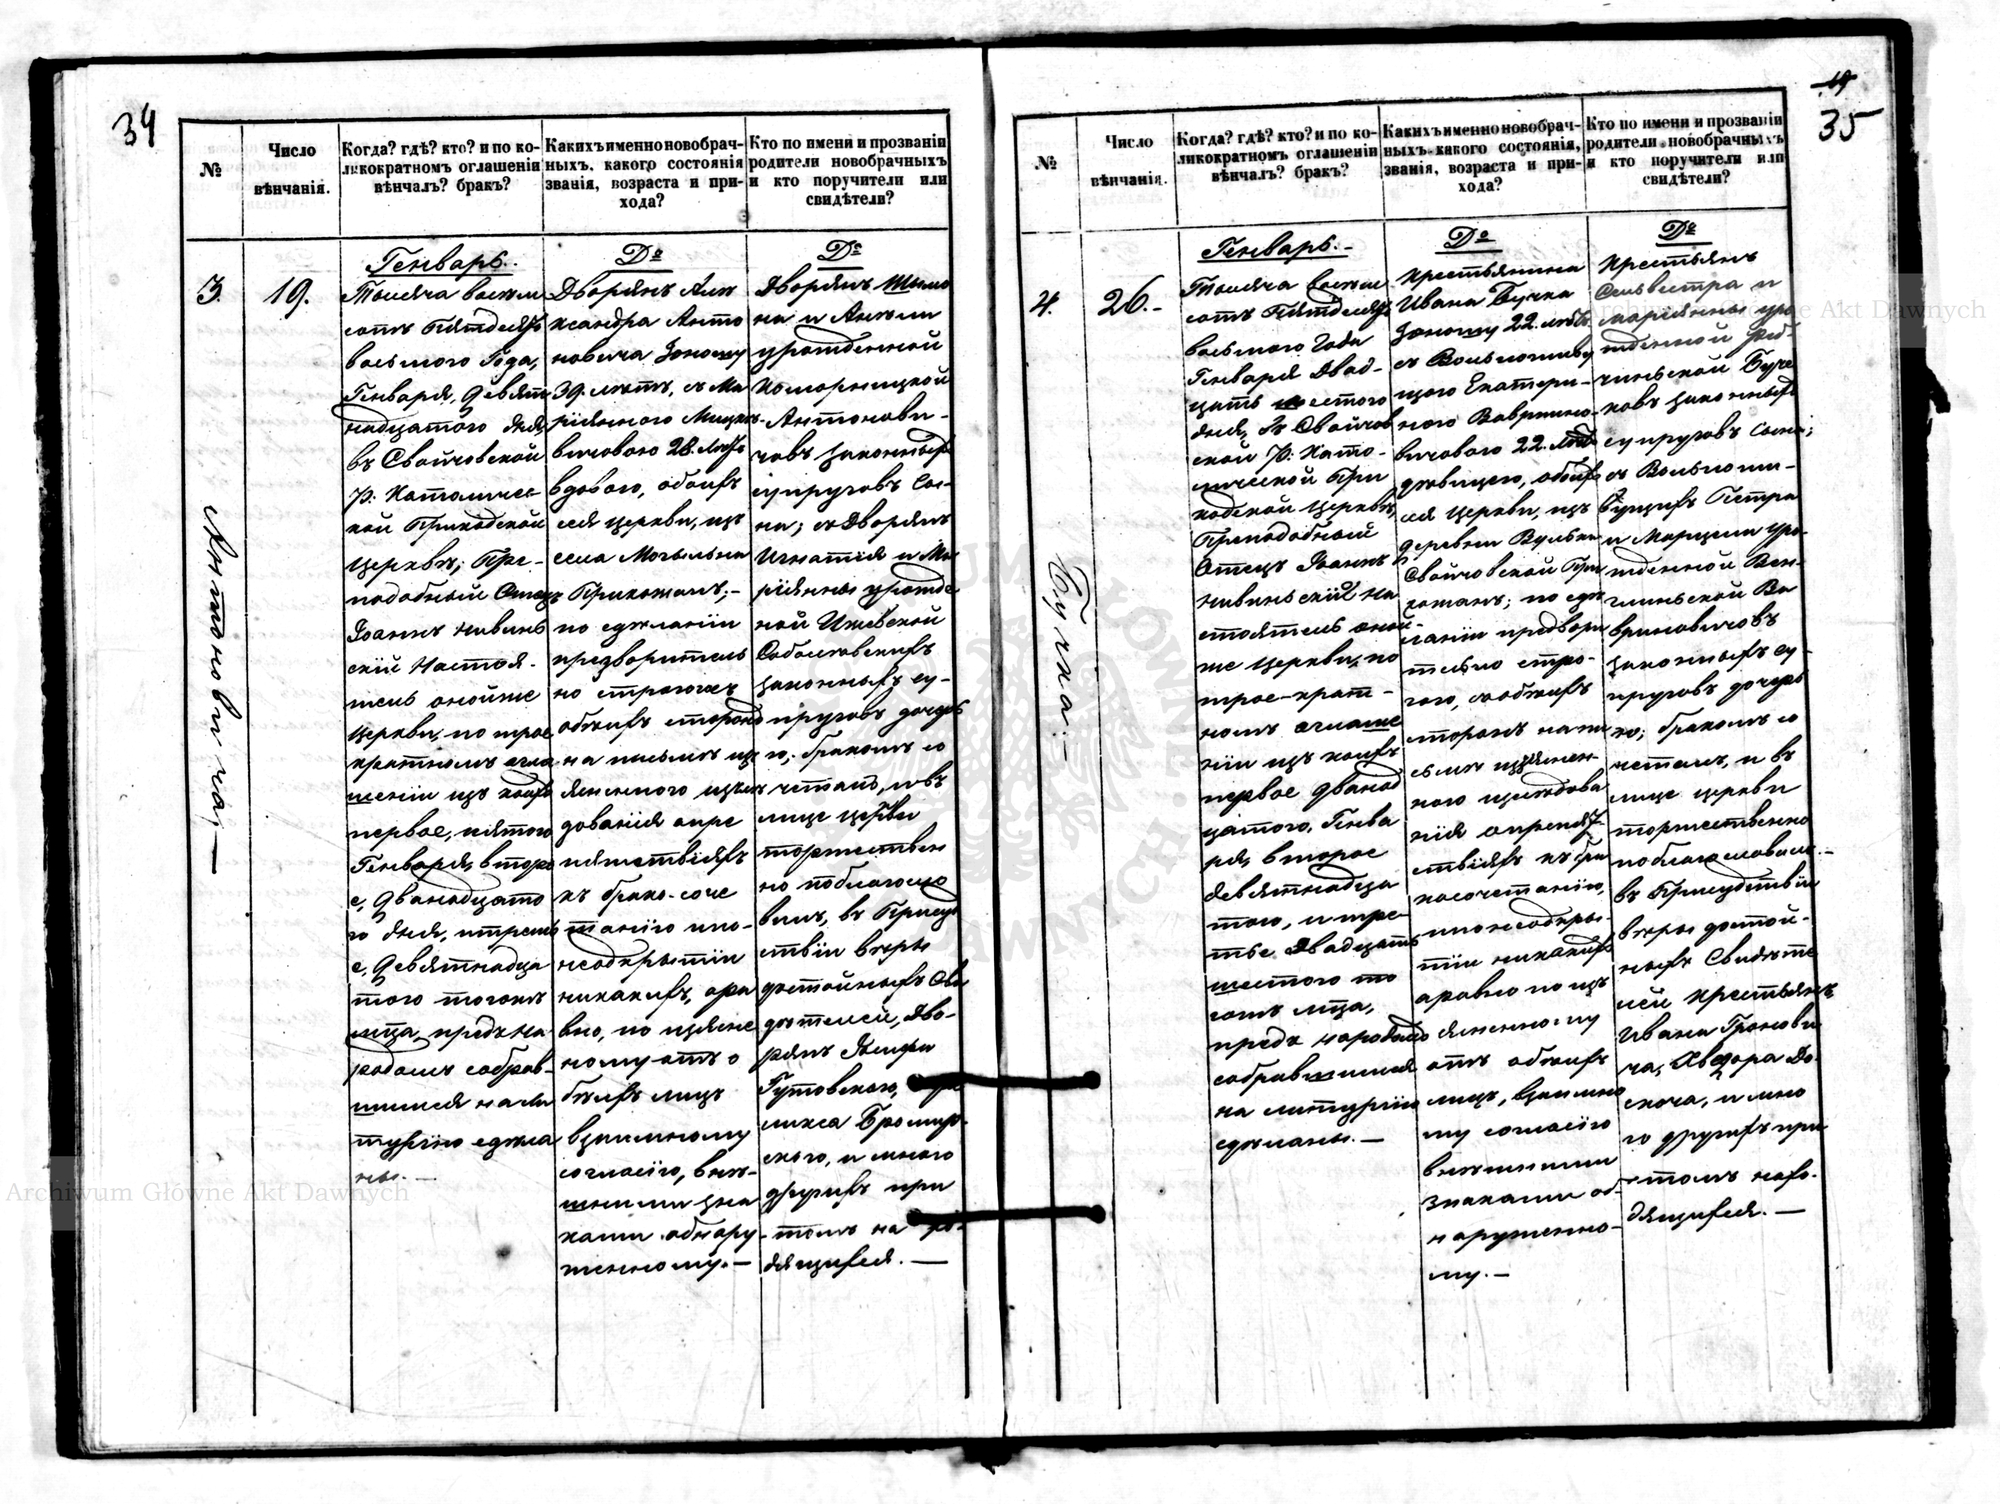 34
№
Число
вѣнчанія.
Когда? гдѣ? кто? и по ко-
ликократномъ оглашеніи
вѣнчалъ? бракъ?
Какихъ именно новобрач-
ныхъ, какого состоянія
званія, возраста и при-
хода?
Кто по имени и прозваніи
родители новобрачныхъ
и кто поручители или
свидѣтели?
3.
19.
Антоновича,—
Генварь.
Тысяча восемь
сотъ Пятдесятъ
восьмого Года,
Генваря, девят
надцатого дня,
въ Свойчовской
Р: Католичес
кой Приходской
Церквѣ; Пре-
подобный Отецъ
Іоаннъ Нивинь
скій Настоя-
тель онойже
Церкви, по трое
кратномъ огла
шеніи изъ коихъ
первое, пятого
Генваря, второ
е, дванадцато
го дня, и треть
е, девятнадца
того тогожъ
мца, предъ на
родомъ собрав-
шимся на ли
тургію сдѣла
ны.—
До
Дворянъ Але
ксандра Анто
новича Юношу
39. лѣтъ, съ Ма
ріянною Мицке
вичовою 28. лѣтъ
вдовою, обоихъ
сея церкви, изъ
села Могыльна
Прихожанъ;—
по сдѣланіи
предворитель
но строгого
обоихъ сторонъ
на письмѣ из
ясненного изслѣ
дованія о пре
пятствіяхъ
къ брако-соче
танію и по-
неодкрытіи
никакихъ, ора
вно, по изясне
ному отъ о
боихъ лицъ
взаимному
согласію, внѣ-
шними зна
ками обнару
женному.—
До
Дворянъ Шимо
на и Анжели
урожденной
Коморницкой
Антонови-
човъ законныхъ
супруговъ Сы-
на; съ Дворянъ
Игнатія и Ма
ріянны урожде
ной Ижевской
Соболевскихъ
законныхъ су-
пруговъ дочерь
ю; бракомъ со
четалъ, и въ
лице церкви
торжествен
но поблагосло
вилъ, въ Присуд
ствіи вѣры
достойныхъ Сви
дѣтелей, Дво-
рянъ
Гутовского,
ликса Бромир-
ского, и много
другихъ при
томъ на хо-
дящихся.—
19
35
№
Число
вѣнчанія.
Когда? гдѣ? кто? и по ко-
ликократномъ оглашеніи
вѣнчалъ? бракъ?
Какихъ именно новобрач-
ныхъ какого состоянія,
званія, возраста и при-
хода?
Кто по имени и прозваніи
родители новобрачныхъ
и кто поручители или
свидѣтели?
4.
26.-
Бучка.—
Генварь.-
Тысяча восемь
сотъ Пятдесятъ
восьмого Года
Генваря Двад-
цать шестого
дня, въ Свойчов
ской Р: Като-
лической При
ходской Церквѣ,
Преподобный
Отецъ Іоаннъ
Нивиньскій На
стоятель оной-
же Церкви, по
трое-крат-
номъ оглаше
ніи изъ коихъ
первое двана
цатого, Генва
ря, второе
девятнадца
того, и тре-
тье Двадцать
шестого то
гожъ мца,
предъ народомъ
собравшимся
на литургію
сдѣланы.—
До
Крестьянина
Ивана Бучка
Юношу 22. лѣтъ
съ Вольноживу
щого Екатери-
ною Вавриино-
вичовою 22. лѣтъ
дѣвицею, обоихъ
сея Церкви, изъ
деревни Вульки
Свойчовской При
хожанъ; по сдѣ
ланіи предвори
тельно стро-
гого, собоихъ
сторонъ на пи
сьмѣ изяснен-
ного изслѣдова
нія о препят
ствіяхъ къ бра
косочетанію,
и по неодкры-
тіи никакихъ
аравно по изъ
ясненному
отъ обоихъ
лицъ, взаимно
му согласію
внѣшними
знаками об-
наруженно-
му.—
До
Крестьянъ
Сильвестра и
Маріянны уро
жденной
Буч
ковъ законныхъ
супруговъ Сына;
съ Вольножи-
вущихъ Петра
и Марцели уро-
жденной
Ва
вриновичовъ
законныхъ су-
пруговъ дочерь
ю; бракомъ со
четалъ, и въ
лице церкви
торжественно
поблагословилъ.—
въ Присудствіи
вѣры достой-
ныхъ Свидѣте
лей Крестьянъ
Ивана Гронови
ча, Ѳведора До
скоча, и мно
го другихъ при
томъ нахо-
дящихся.—
Archiwum Główne Akt Dawnych
Archiwum Główne Akt Dawnych